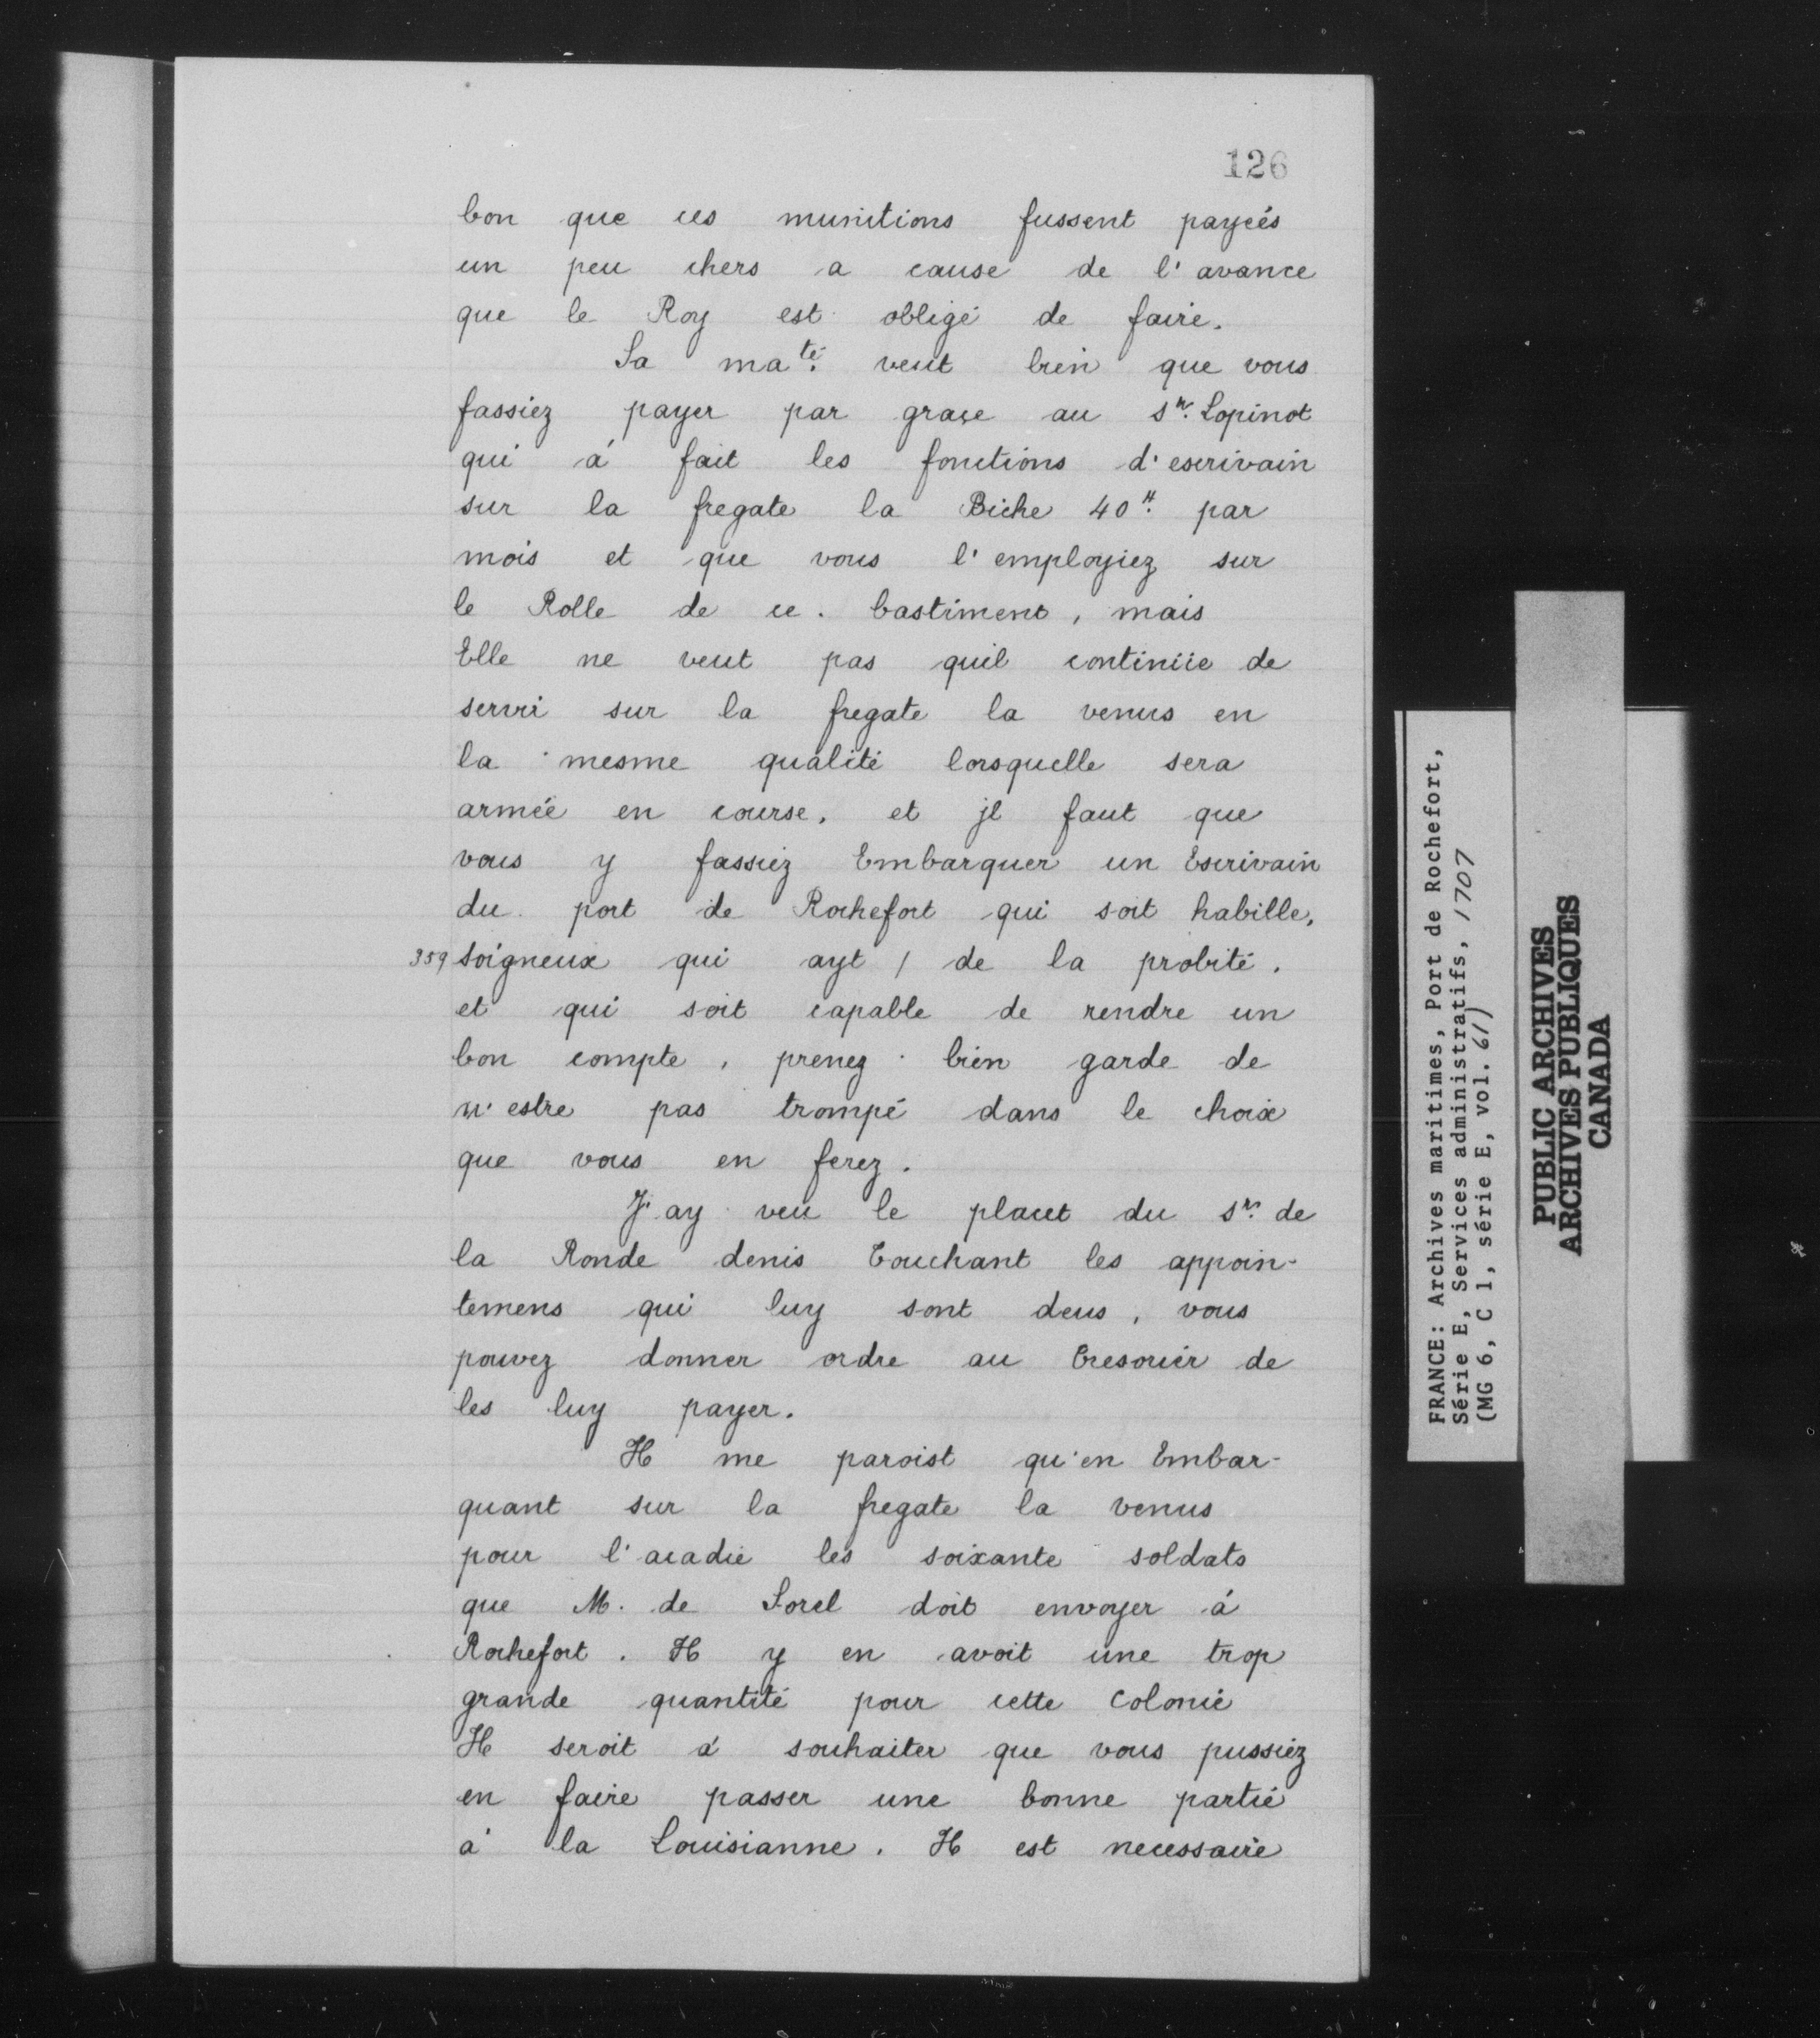 126
bon que ces munitions fussent payeés
un peu chers a cause de l'avance
que le Roy est obligé de faire.
Sa ma.té veut bien que vous
fassiez payer par grace au s.r Lopinot
qui á fait les fonctions d'escrivain
sur la fregate la Biche 40.# par
mois et que vous l'employiez sur
le Rolle de ce. bastiment, mais
Elle ne veut pas quil continüe de
servir sur la fregate la venus en
la mesme qualité lorsquelle sera
armée en course, et jl faut que
vous y fassiez Embarquer un Escrivain
du port de Rochefort qui soit habille,
359 soigneux qui ayt / de la probité.
et qui soit capable de rendre un
bon compte, prenez bien garde de
n'estre pas trompé dans le choix
que vous en ferez.
J'ay veu le placet du s.r de
la Ronde denis touchant les appoin-
temens qui luy sont deus, vous
pouvez donner ordre au tresorier de
les luy payer.
Il me paroist qu'en Embar-
quant sur la fregate la venus
pour l'acadie les soixante soldats
que M. de Sorel doit envoyer á
Rochefort. Il y en avoit une trop
grande quantité pour cette Colonie
Il seroit á souhaiter que vous pussiez
en faire passer une bonne partie
á la Louisianne. Il est necessaire
FRANCE: Archives maritimes, Port de Rochefort,
Série E, Services administratifs, 1707
(MG 6, C 1, série E, vol. 61)
PUBLIC ARCHIVES
ARCHIVES PUBLIQUES
CANADA